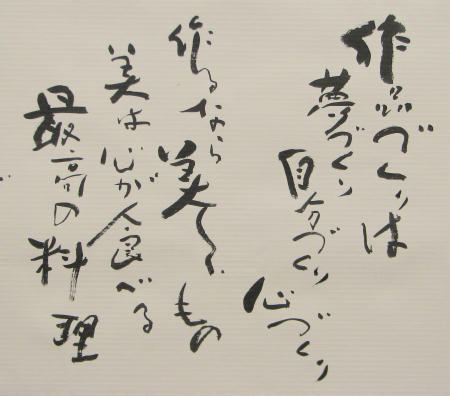 作品づくりは
夢づくり
自分づくり
心づくり
作るなら
美しいもの
美は心が食べる
最高の料理